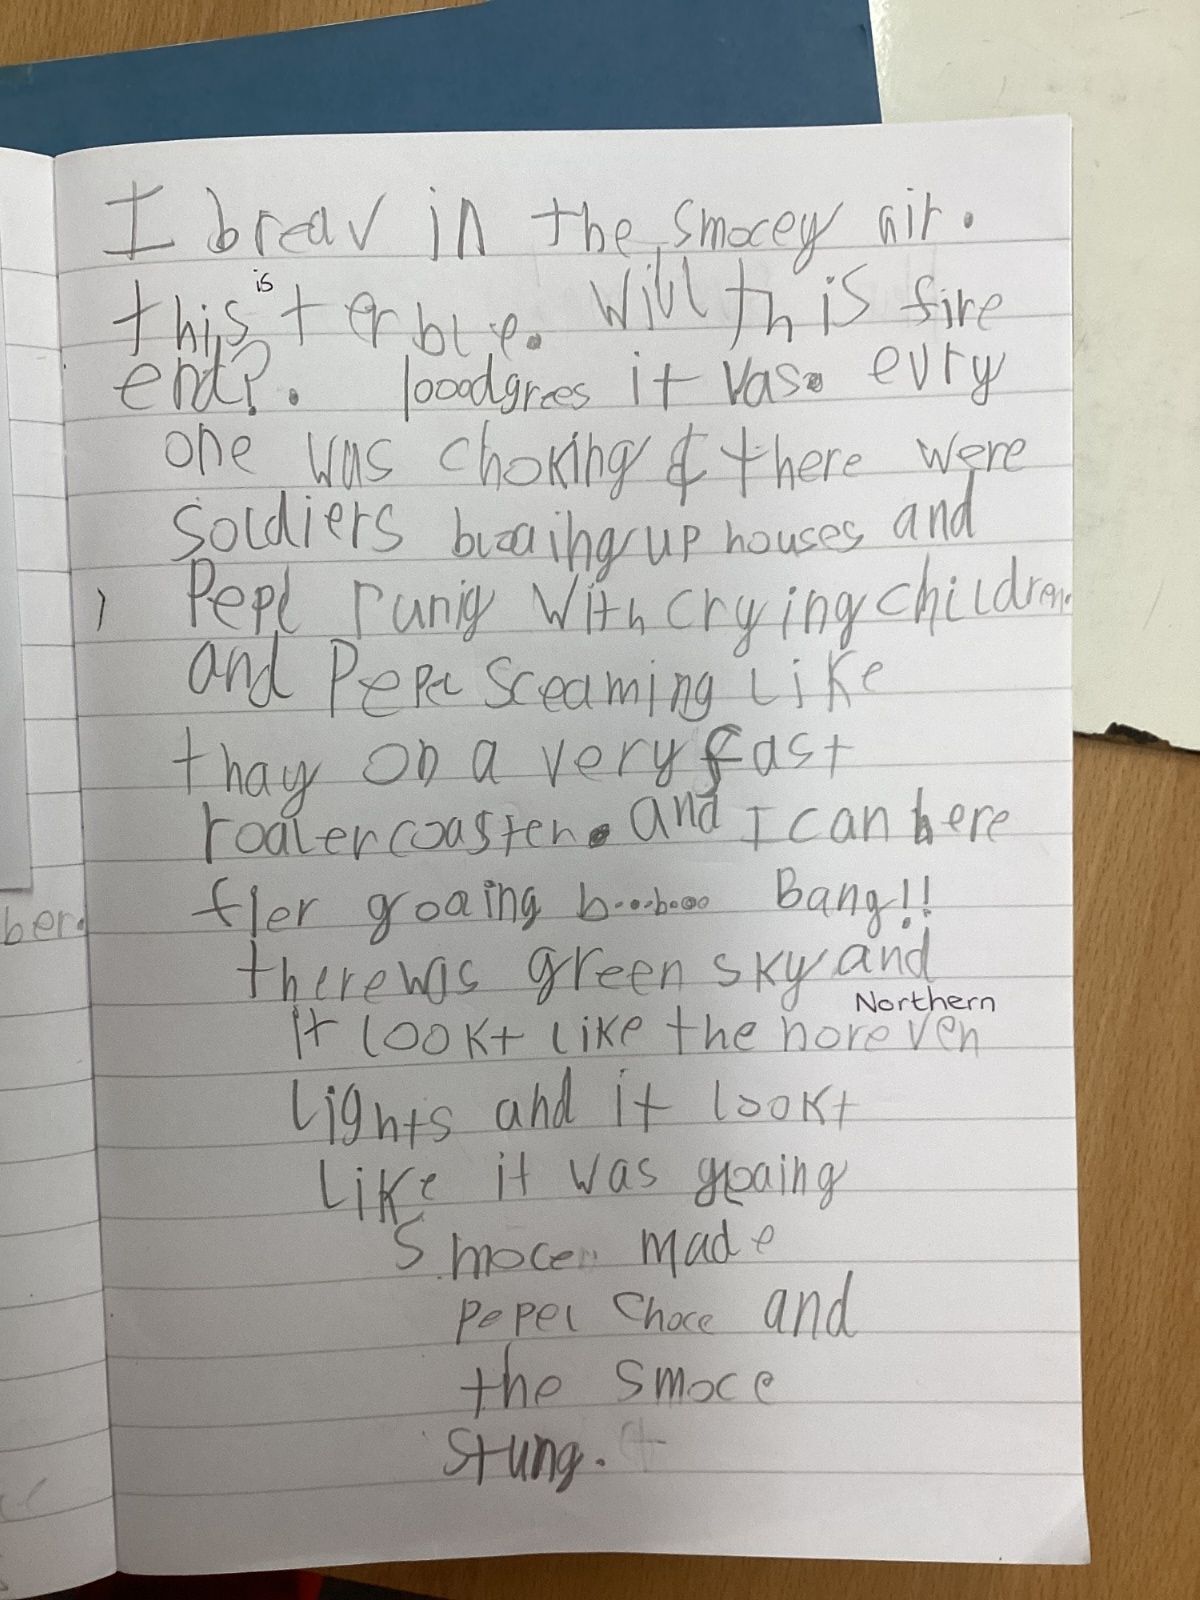 I breav in the smocey air.
this is terble. Will this fire
end?. 1000dgrees it vas. evry
one was choking & there were
soldiers bloaing up houses and
Pepl runig with crying children.
and Pepel sceaming like
thay on a very fast
roalercoaster. and I can here
fler goaing b...b... Bang!!
there was green sky and
Northern
it lookt like the noreven
lights and it lookt
like it was goaing
Smoce made
pepel choce and
the smoce
stung.
ber.